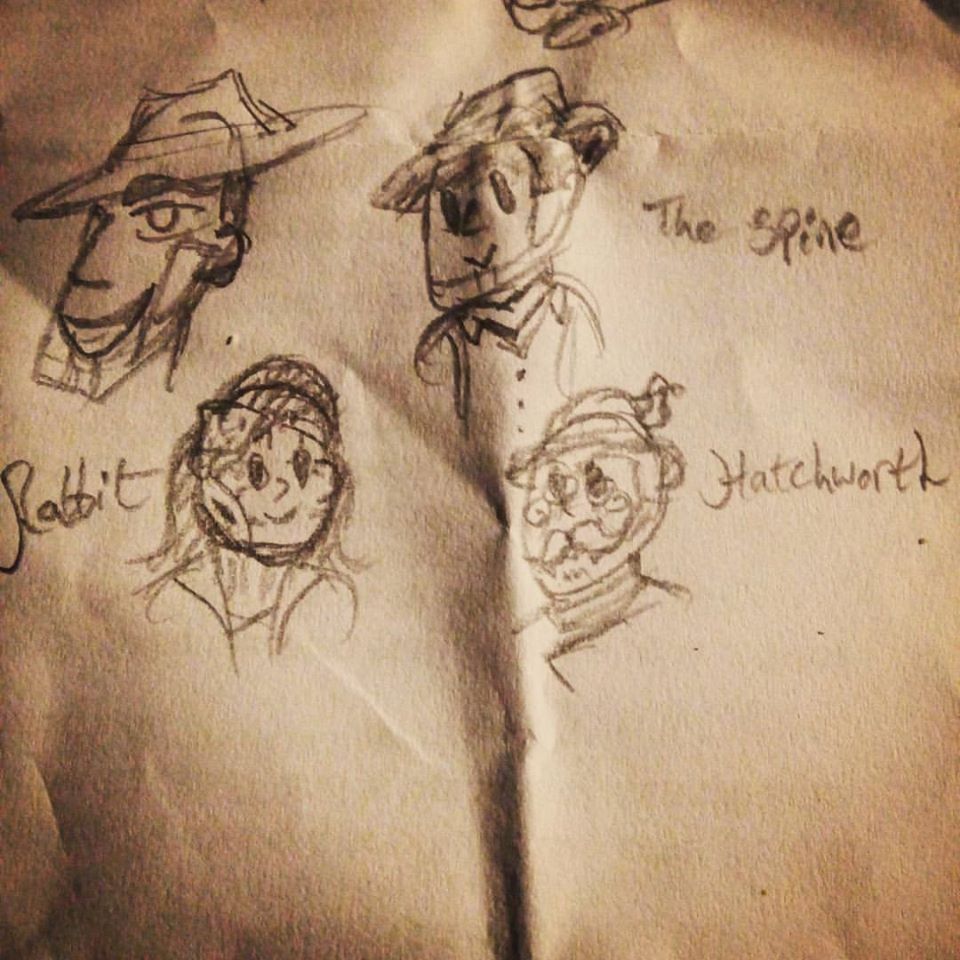 The Spine
Rabbit
Hatchworth